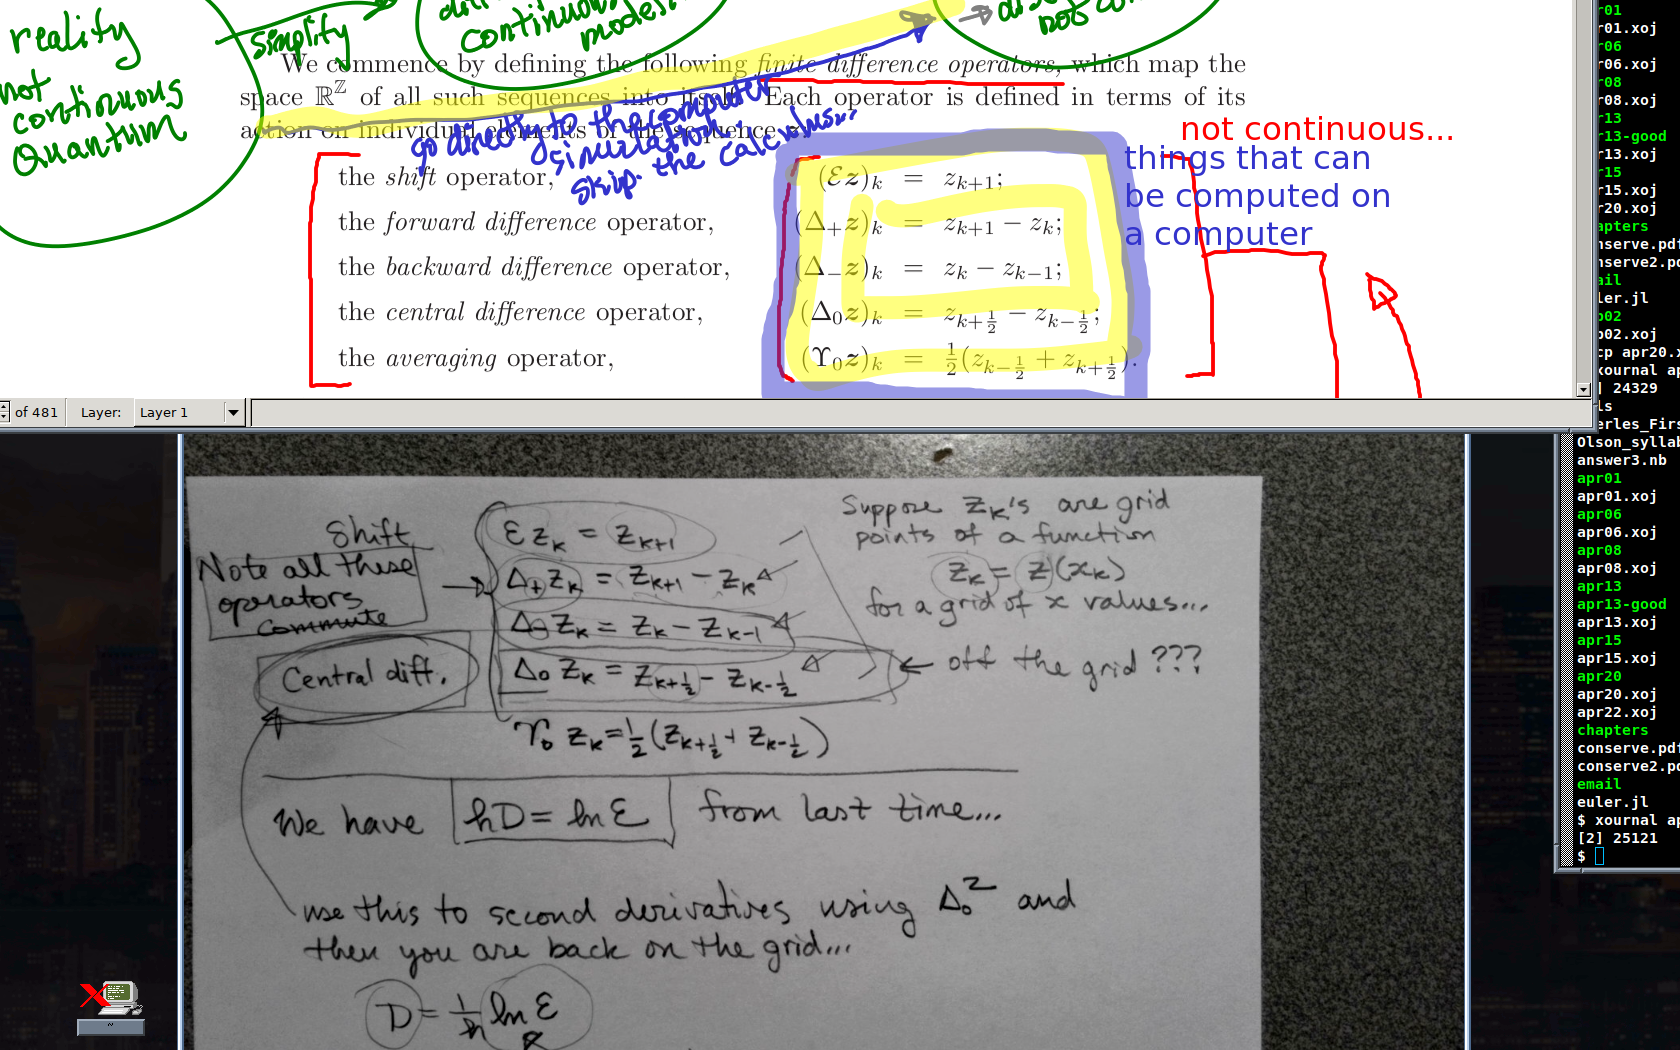 reality
not
continuous
Quantum
simplify
continuous
models
not con
We commence by defining the following finite difference operators, which map the
space ℝ^ℤ of all such sequences into itself. Each operator is defined in terms of its
action on individual elements of the sequence
go directly to the computer
simulation
skip the calculus...
not continuous...
things that can
be computed on
a computer
the shift operator, (ℰz)_k = z_{k+1};
the forward difference operator, (Δ_+z)_k = z_{k+1} − z_k;
the backward difference operator, (Δ_−z)_k = z_k − z_{k−1};
the central difference operator, (Δ_0z)_k = z_{k+1/2} − z_{k−1/2};
the averaging operator, (ϒ_0z)_k = 1/2(z_{k−1/2} + z_{k+1/2}).
of 481 Layer: Layer 1
Shift
Note all these
operators
commute
Central diff.
ℰ z_k = z_{k+1}
Δ_+ z_k = z_{k+1} − z_k
Δ_− z_k = z_k − z_{k−1}
Δ_0 z_k = z_{k+1/2} − z_{k−1/2}
ϒ_0 z_k = 1/2(z_{k+1/2} + z_{k−1/2})
Suppose z_k's are grid
points of a function
z_k = z(x_k)
for a grid of x values...
← off the grid ???
We have hD = ln ℰ from last time...
use this to second derivatives using Δ_0^2 and
then you are back on the grid...
D = 1/h ln ℰ
r01
r01.xoj
r06
r06.xoj
r08
r08.xoj
r13
r13-good
r13.xoj
r15
r15.xoj
r20.xoj
apters
nserve.pdf
nserve2.pd
ail
ler.jl
b02
b02.xoj
cp apr20.x
xournal ap
] 24329
ls
erles_Firs
Olson_syllab
answer3.nb
apr01
apr01.xoj
apr06
apr06.xoj
apr08
apr08.xoj
apr13
apr13-good
apr13.xoj
apr15
apr15.xoj
apr20
apr20.xoj
apr22.xoj
chapters
conserve.pdf
conserve2.pd
email
euler.jl
$ xournal ap
[2] 25121
$